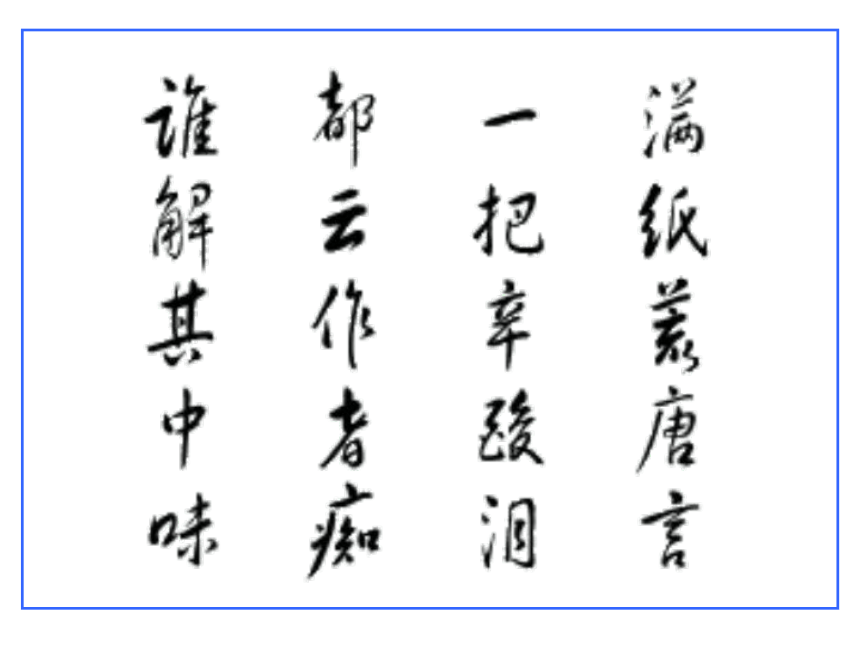 满纸荒唐言
一把辛酸泪
都云作者痴
谁解其中味